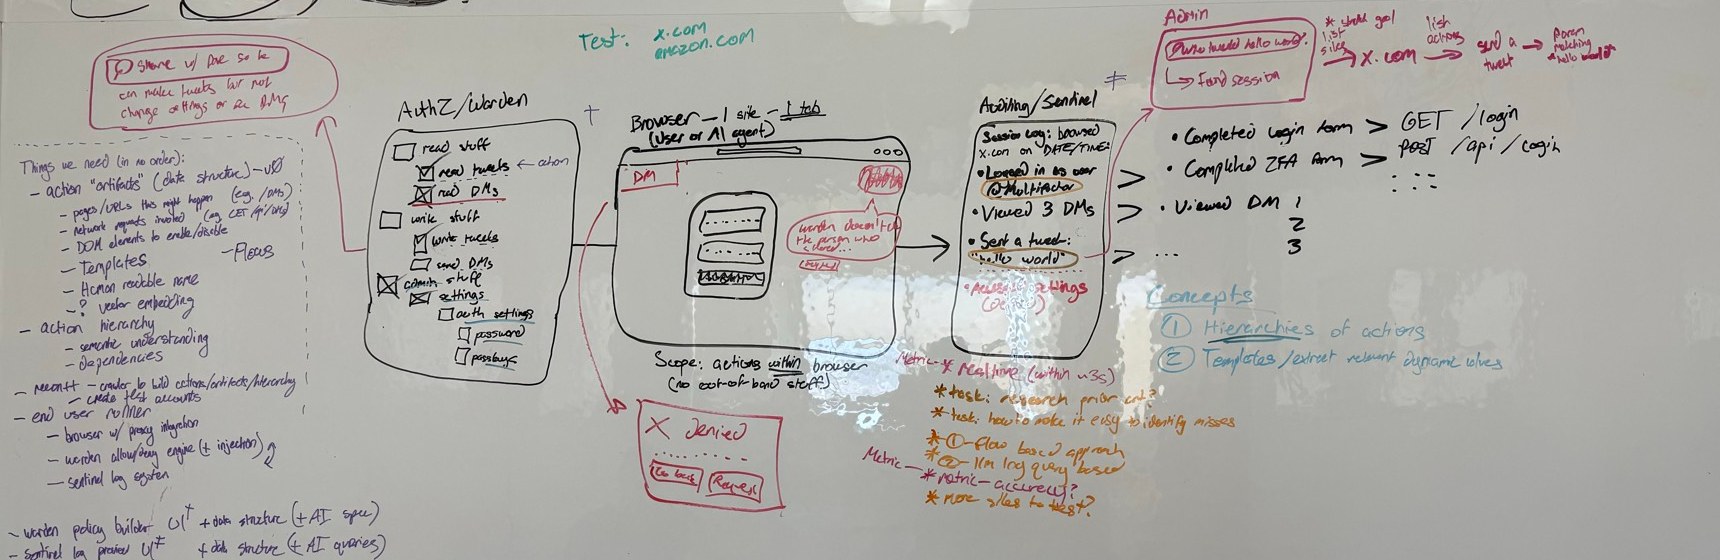 Test: x.com
amazon.com
Share w/ Dave so he
can make tweets but not
change settings or see DMs
Things we need (in no order):
- action "artifacts" (data structure) - v0
- pages/URLs this might happen (eg. /DMs)
- network requests involved (eg. GET /api/DMs)
- DOM elements to enable/disable
- Templates
- Flows
- Human readable name
- ? vector embedding
- action hierarchy
- semantic understanding
- dependencies
- crawler to build actions/artifacts/hierarchy
- create test accounts
- end user runner
- browser w/ proxy integration
- warden allow/deny engine (+ injection)
- sentinel log system
- warden policy builder UI + data structure (+ AI spec)
- sentinel log UI + data structure (+ AI queries)
AuthZ/Warden
read stuff
read tweets ← action
read DMs
write stuff
write tweets
send DMs
admin stuff
settings
auth settings
password
passkeys
+
Browser - 1 site - 1 tab
(User or AI agent)
DM
warden doesn't
the person who
Scope: actions within browser
(no out-of-band stuff)
X denied
Go back
Request
≠
Auditing/Sentinel
Session log: browsed
x.com on DATE/TIME:
• Logged in as user
@Multifactor
• Viewed 3 DMs
• Sent a tweet:
"hello world"
settings
> • Completed login form > GET /login
> • Completed 2FA form > POST /api/login
> • Viewed DM 1
2
3
> ...
Admin
Who tweeted hello world?
↳ Found session
list
sites
→ x.com
list
actions
→ send a
tweet
→ param
matching
"hello world"
Concepts
① Hierarchies of actions
② Templates/extract relevant dynamic values
Metric - * realtime (within ~3s)
* task: research prior art?
* task: how to make it easy to identify misses
* ① - flow based approach
* ② - llm log query based
Metric - * metric - accuracy?
* more sites to test?